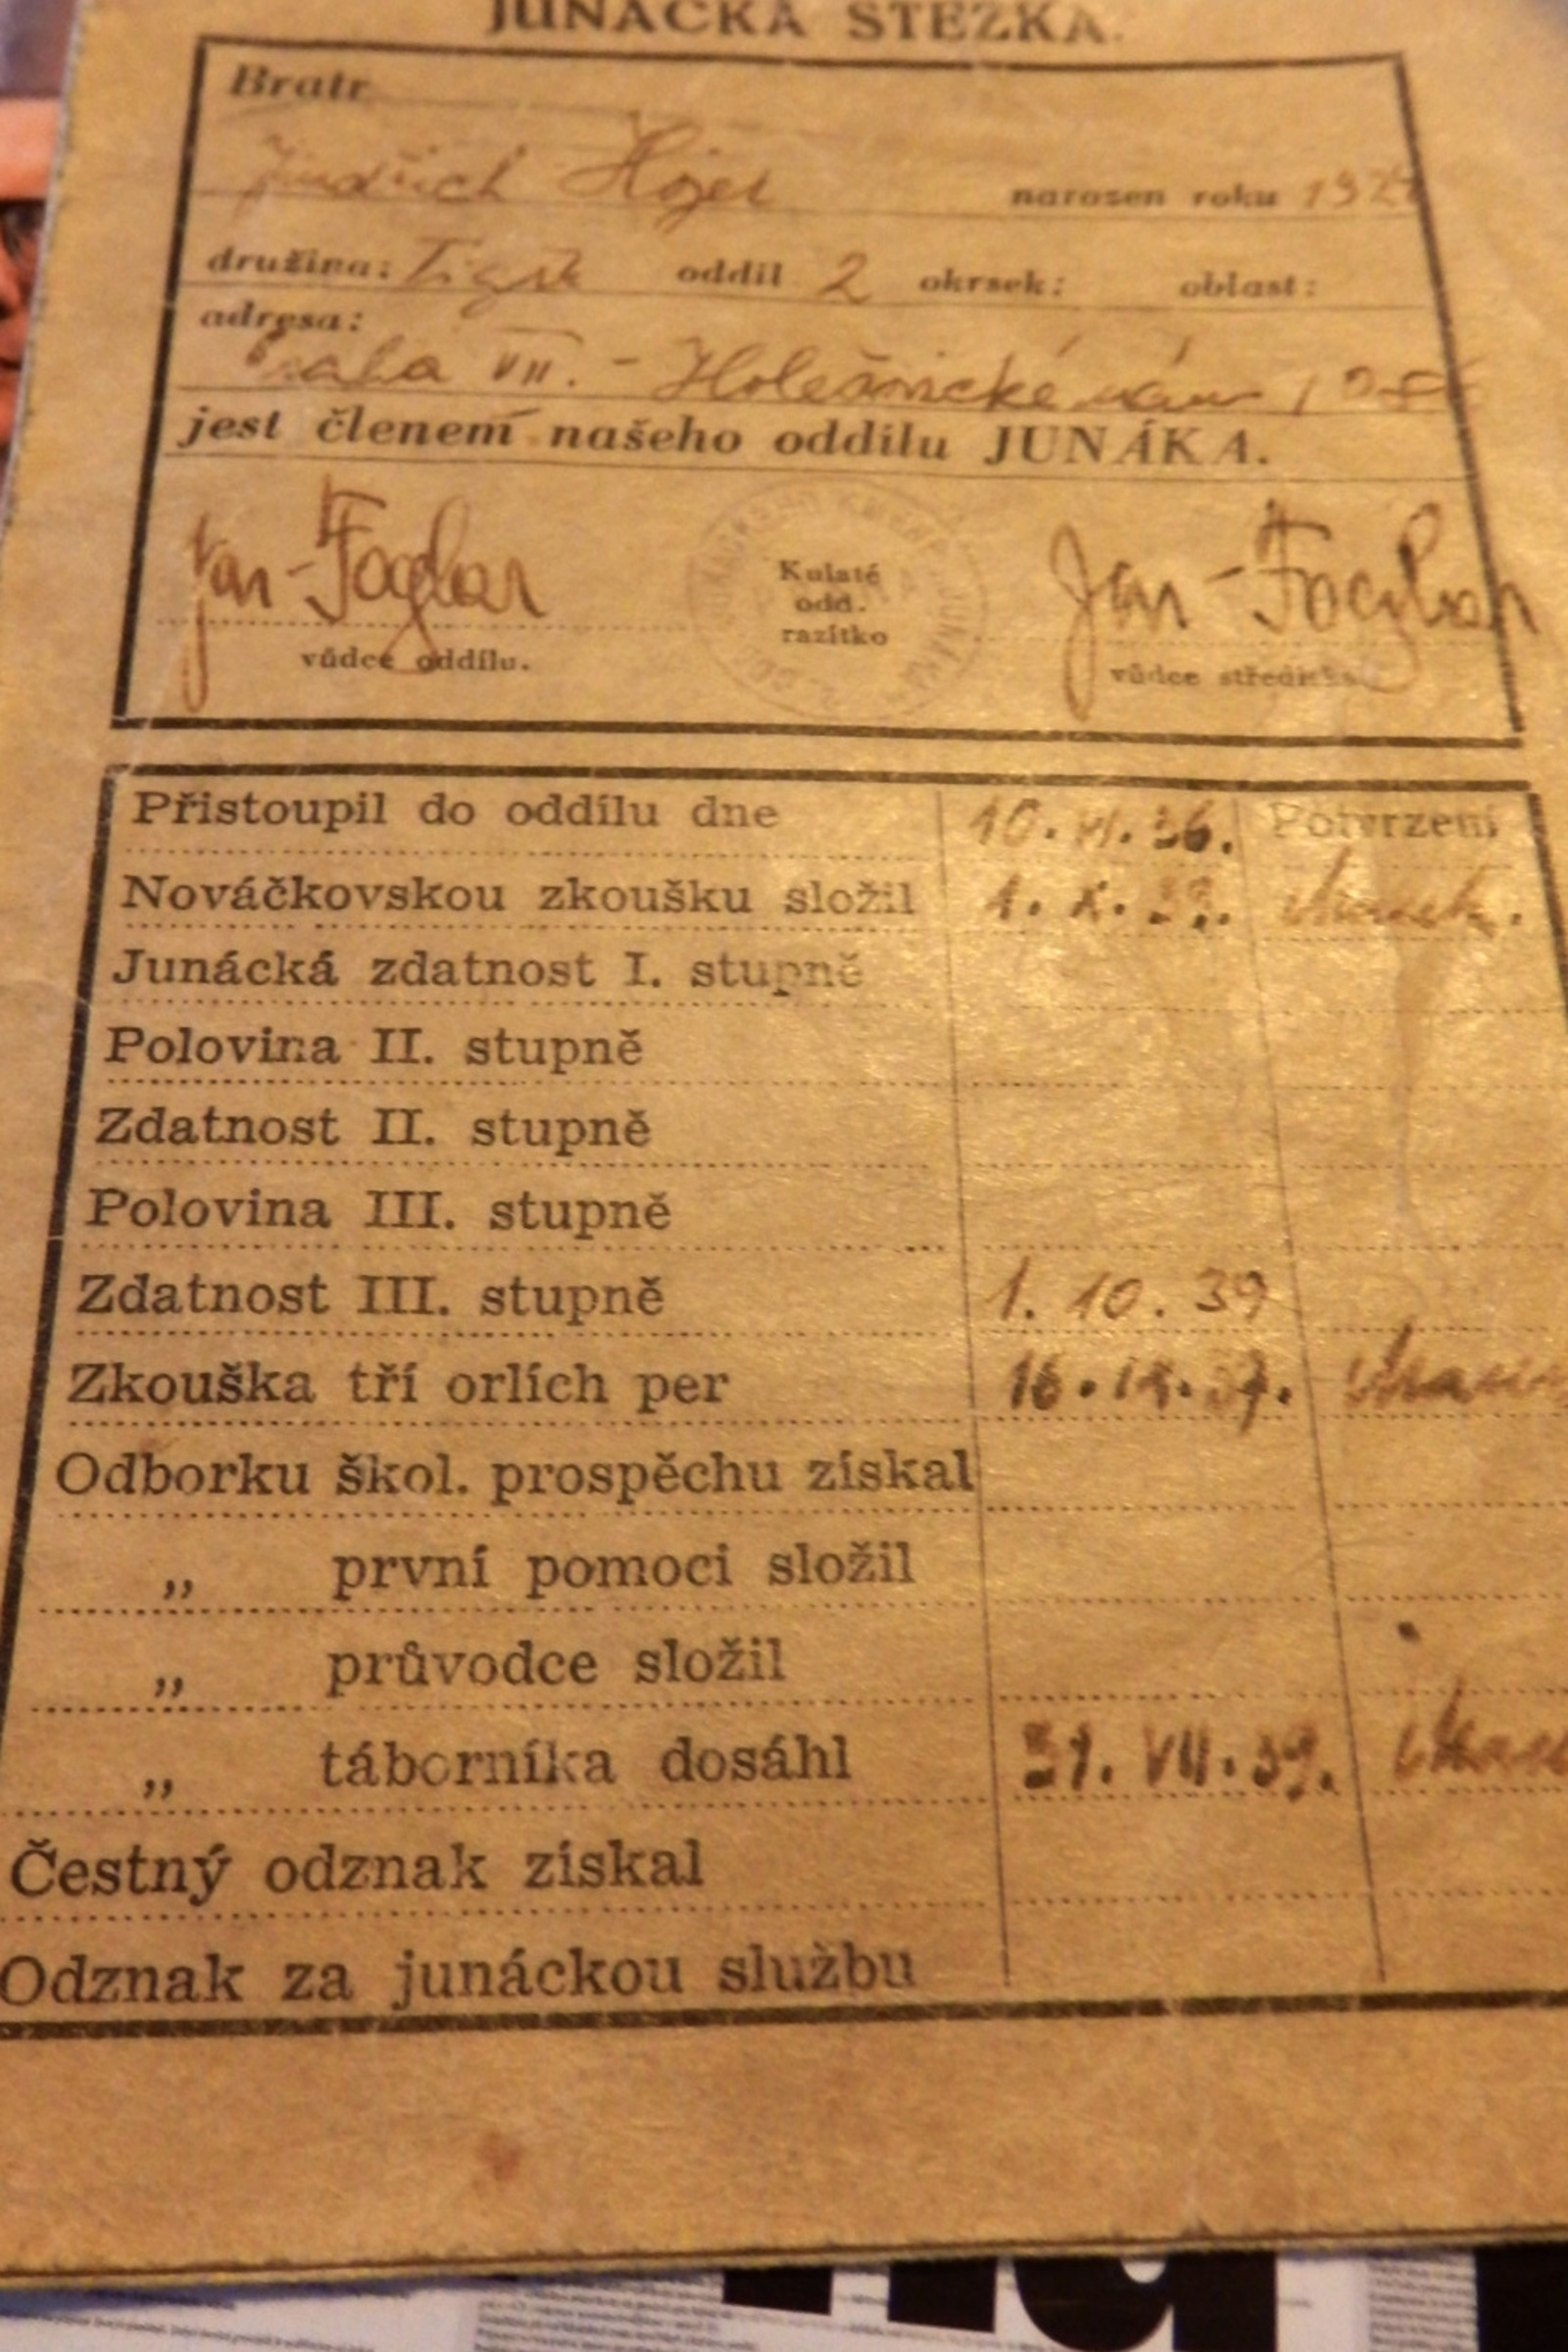 JUNÁCKÁ STEZKA.
Bratr
Jindřich Hojer narozen roku
družina: Tygři oddíl 2 okrsek: oblast:
adresa:
Praha VII. - Holešovické nám
jest členem našeho oddílu JUNÁKA.
Jan-Foglar Jan-Foglar
Kulaté
odd.
razítko
vůdce oddílu. vůdce střediska
Přistoupil do oddílu dne 10. VI. 36. Potvrzení
Nováčkovskou zkoušku složil 1. X.
Junácká zdatnost I. stupně
Polovina II. stupně
Zdatnost II. stupně
Polovina III. stupně
Zdatnost III. stupně 1. 10. 39
Zkouška tří orlích per 16. IX. 37.
Odborku škol. prospěchu získal
„ první pomoci složil
„ průvodce složil
„ táborníka dosáhl 31. VII. 39.
Čestný odznak získal
Odznak za junáckou službu